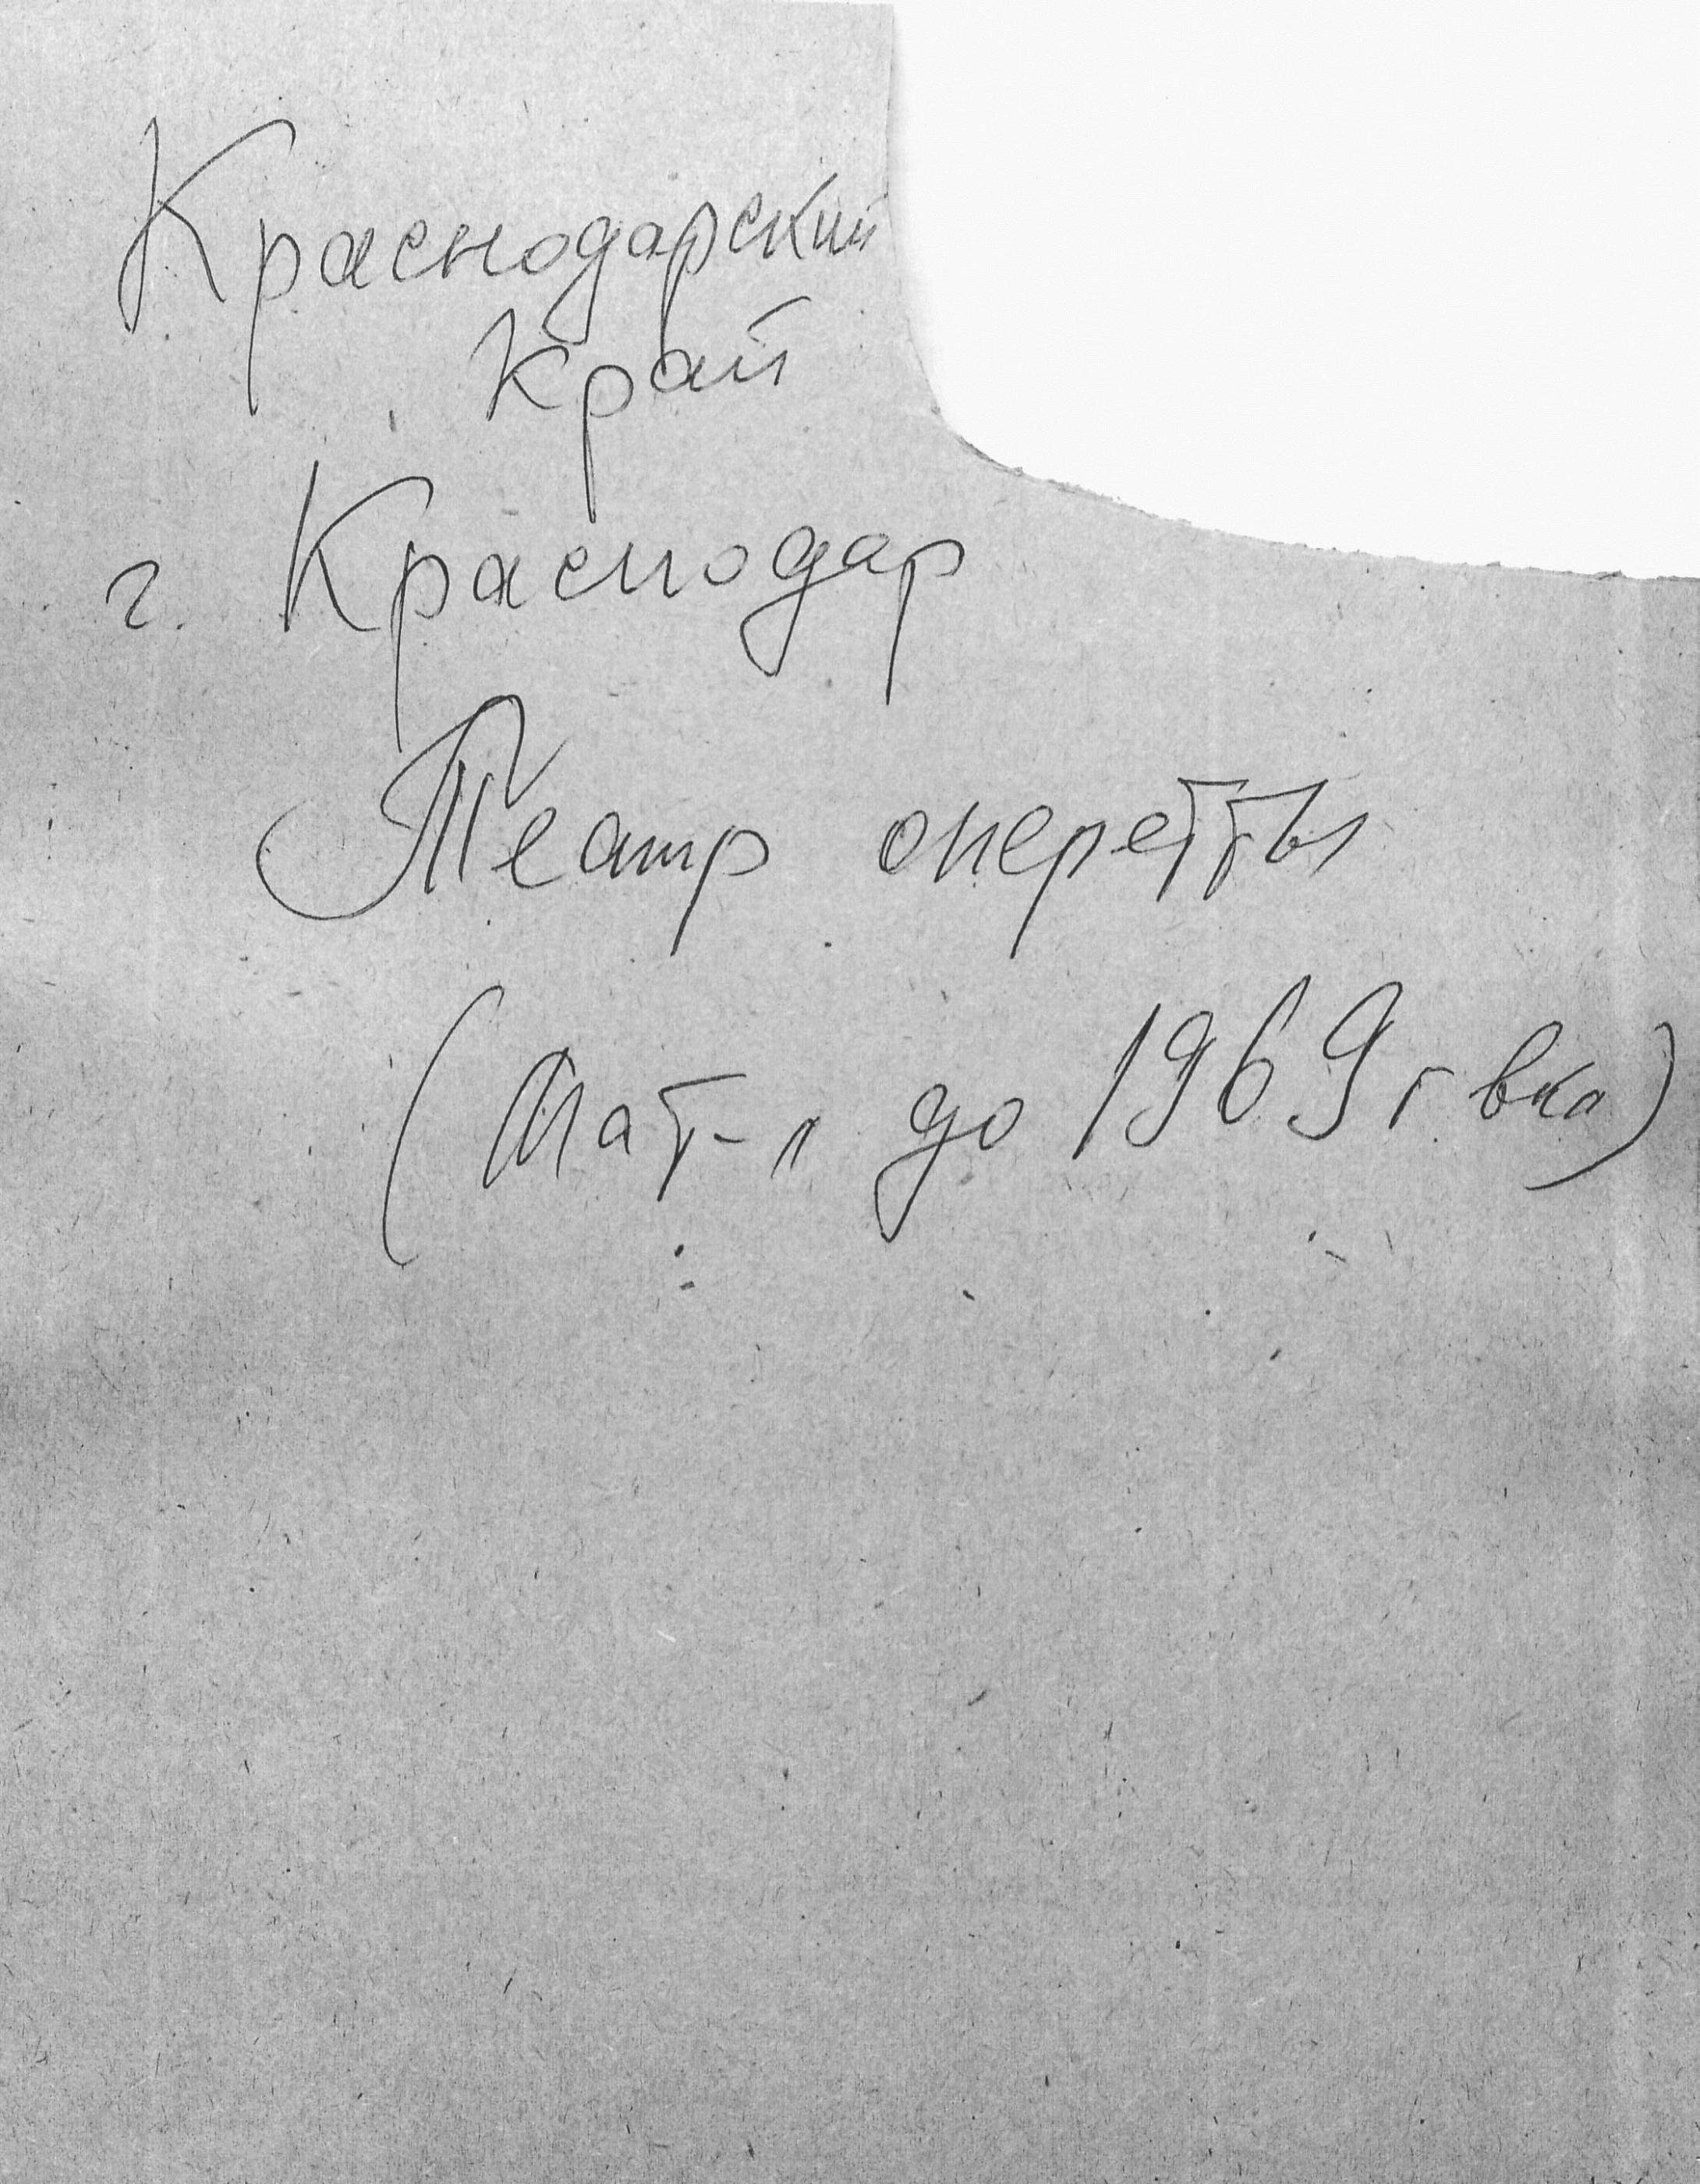 Краснодарский
край
г. Краснодар
Театр оперетты
(Мат-л до 1969 г вкл)